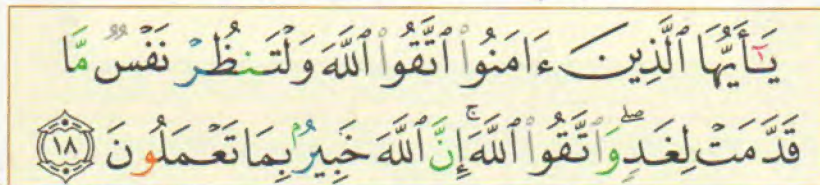 يَـٰٓأَيُّهَا ٱلَّذِينَ ءَامَنُوا۟ ٱتَّقُوا۟ ٱللَّهَ وَلْتَنظُرْ نَفْسٌ مَّا
قَدَّمَتْ لِغَدٍ ۖ وَٱتَّقُوا۟ ٱللَّهَ ۚ إِنَّ ٱللَّهَ خَبِيرٌۢ بِمَا تَعْمَلُونَ ١٨